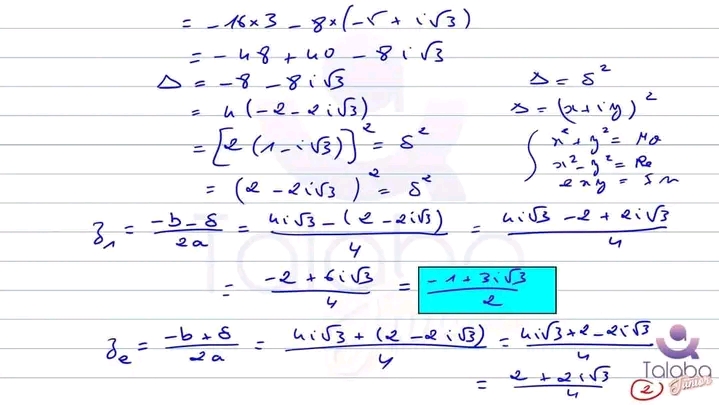 = -16×3 - 8×(-5 + i√3)
= -48 + 40 - 8i√3
Δ = -8 - 8i√3
= 4(-2 - 2i√3)
= [2(1 - i√3)]² = δ²
= (2 - 2i√3)² = δ²
Δ = δ²
Δ = (x + iy)²
{ x² + y² = Mo
x² - y² = Re
2xy = Im
z₁ = (-b - δ)/2a = (4i√3 - (2 - 2i√3))/4 = (4i√3 - 2 + 2i√3)/4
= (-2 + 6i√3)/4 = (-1 + 3i√3)/2
z₂ = (-b + δ)/2a = (4i√3 + (2 - 2i√3))/4 = (4i√3 + 2 - 2i√3)/4
= (2 + 2i√3)/4
2
Talaba
Junior
Talaba